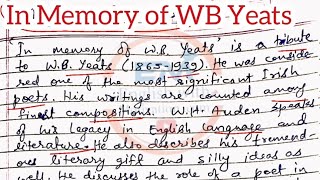 In Memory of WB Yeats
'In memory of W.B. Yeats' is a tribute
to W.B. Yeats (1865-1939). He was conside-
red one of the most significant Irish
poets. His writings are counted among
finest compositions. W.H. Auden speaks
of his legacy in English language and
literature. He also describes his tremend-
ous literary gift and silly ideas as
well. He discusses the role of a poet in